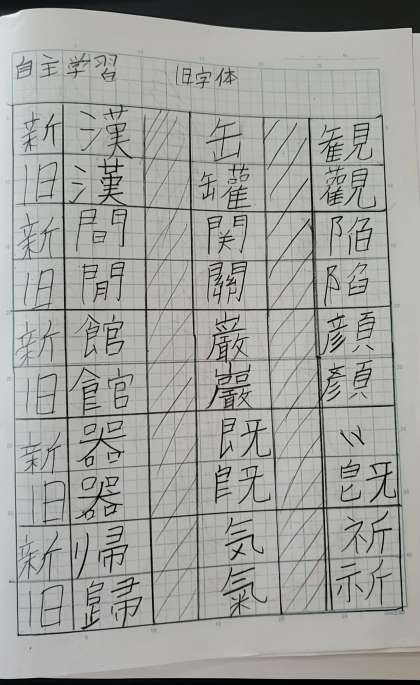 自主学習 旧字体
新 漢 缶 観
旧 漢 罐 觀
新 間 関 陥
旧 閒 關 陷
新 館 巌 顔
旧 館 巖 顏
新 器 既 〃
旧 器 既 皀旡
新 帰 気 祈
旧 歸 氣 祈